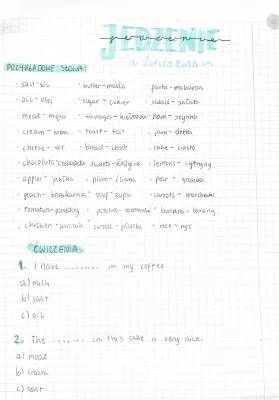 JEDZENIE
z ćwiczeniami
PRZYKŁADOWE SŁOWA:
· salt - sól · butter - masło · pasta - makaron
· oil - olej · sugar - cukier · salad - sałata
· meat - mięso · sausages - kiełbaski · ham - szynka
· cream - krem · toast - tost · jam - dżem
· cheese - ser · bread - chleb · cake - ciasto
· chocolate - czekolada · sweets - słodycze · lemons - cytryny
· apple - jabłko · plum - śliwka · pear - gruszka
· peach - brzoskwinia · soup - zupa · carrots - marchewki
· tomatoes - pomidory · potatoes - ziemniaki · bananas - banany
· chicken - kurczak · cereal - płatki · rice - ryż
ĆWICZENIA
1. I have ........ in my coffee
a) milk
b) salt
c) oil
2. The ........ in this cake is very nice.
a) meat
b) cream
c) salt